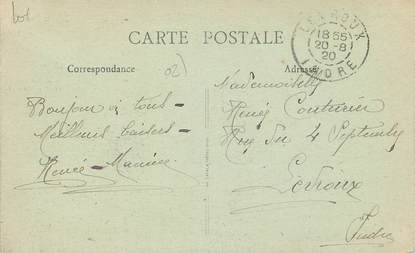 CARTE POSTALE
Correspondance
Adresse
LEVROUX
18 55
20-8
20
INDRE
02
Bonjour à tous -
Meilleurs baisers -
Renée - Maurice
Mademoiselle
Renée Couturier
Rue du 4 Septembre
Levroux
Indre